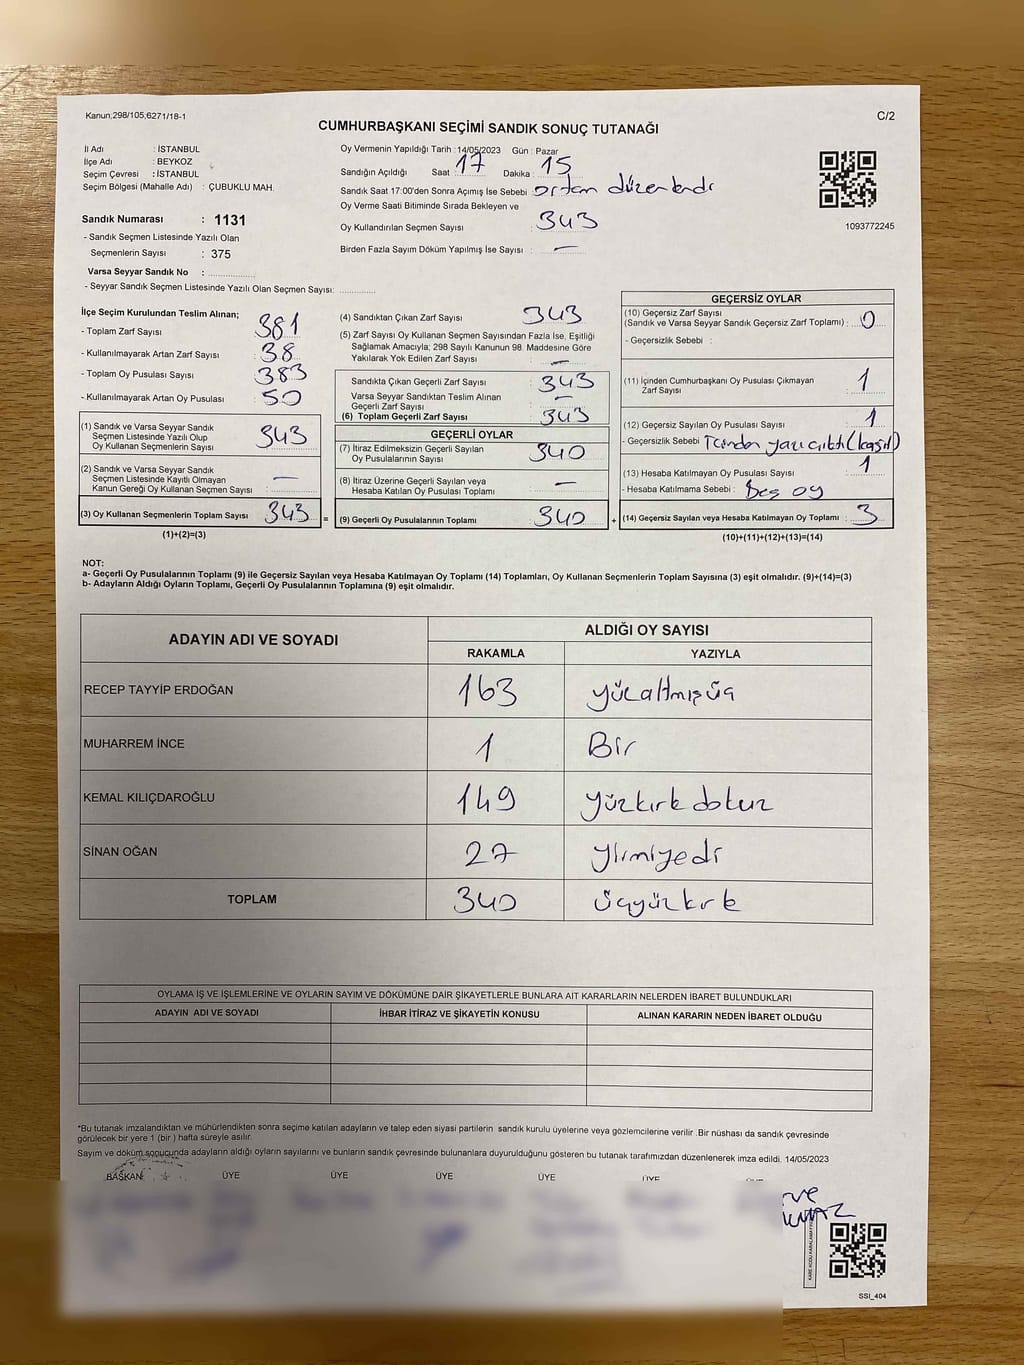 Kanun;298/105,6271/18-1
C/2
CUMHURBAŞKANI SEÇİMİ SANDIK SONUÇ TUTANAĞI
İl Adı : İSTANBUL
İlçe Adı : BEYKOZ
Seçim Çevresi : İSTANBUL
Seçim Bölgesi (Mahalle Adı) : ÇUBUKLU MAH.
Sandık Numarası : 1131
- Sandık Seçmen Listesinde Yazılı Olan
Seçmenlerin Sayısı : 375
Varsa Seyyar Sandık No :
- Seyyar Sandık Seçmen Listesinde Yazılı Olan Seçmen Sayısı:
Oy Vermenin Yapıldığı Tarih : 14/05/2023 Gün : Pazar
Sandığın Açıldığı Saat : 17 Dakika : 15
Sandık Saat 17:00'den Sonra Açımış İse Sebebi : ortam düzenlendi
Oy Verme Saati Bitiminde Sırada Bekleyen ve
Oy Kullandırılan Seçmen Sayısı : 343
Birden Fazla Sayım Döküm Yapılmış İse Sayısı : —
1093772245
İlçe Seçim Kurulundan Teslim Alınan;
- Toplam Zarf Sayısı : 381
- Kullanılmayarak Artan Zarf Sayısı : 38
- Toplam Oy Pusulası Sayısı : 383
- Kullanılmayarak Artan Oy Pusulası : 50
(1) Sandık ve Varsa Seyyar Sandık
Seçmen Listesinde Yazılı Olup
Oy Kullanan Seçmenlerin Sayısı : 343
(2) Sandık ve Varsa Seyyar Sandık
Seçmen Listesinde Kayıtlı Olmayan
Kanun Gereği Oy Kullanan Seçmen Sayısı : —
(3) Oy Kullanan Seçmenlerin Toplam Sayısı : 343 =
(1)+(2)=(3)
(4) Sandıktan Çıkan Zarf Sayısı : 343
(5) Zarf Sayısı Oy Kullanan Seçmen Sayısından Fazla İse, Eşitliği
Sağlamak Amacıyla; 298 Sayılı Kanunun 98. Maddesine Göre
Yakılarak Yok Edilen Zarf Sayısı : —
Sandıkta Çıkan Geçerli Zarf Sayısı : 343
Varsa Seyyar Sandıktan Teslim Alınan
Geçerli Zarf Sayısı : —
(6) Toplam Geçerli Zarf Sayısı : 343
GEÇERLİ OYLAR
(7) İtiraz Edilmeksizin Geçerli Sayılan
Oy Pusulalarının Sayısı : 340
(8) İtiraz Üzerine Geçerli Sayılan veya
Hesaba Katılan Oy Pusulası Toplamı : —
(9) Geçerli Oy Pusulalarının Toplamı : 340 +
GEÇERSİZ OYLAR
(10) Geçersiz Zarf Sayısı
(Sandık ve Varsa Seyyar Sandık Geçersiz Zarf Toplamı) : 0
- Geçersizlik Sebebi :
(11) İçinden Cumhurbaşkanı Oy Pusulası Çıkmayan
Zarf Sayısı : 1
(12) Geçersiz Sayılan Oy Pusulası Sayısı : 1
- Geçersizlik Sebebi : İçinden yazı çıktı
(13) Hesaba Katılmayan Oy Pusulası Sayısı : 1
- Hesaba Katılmama Sebebi : Boş oy
(14) Geçersiz Sayılan veya Hesaba Katılmayan Oy Toplamı : 3
(10)+(11)+(12)+(13)=(14)
NOT:
a- Geçerli Oy Pusulalarının Toplamı (9) ile Geçersiz Sayılan veya Hesaba Katılmayan Oy Toplamı (14) Toplamları, Oy Kullanan Seçmenlerin Toplam Sayısına (3) eşit olmalıdır. (9)+(14)=(3)
b- Adayların Aldığı Oyların Toplamı, Geçerli Oy Pusulalarının Toplamına (9) eşit olmalıdır.
ADAYIN ADI VE SOYADI
ALDIĞI OY SAYISI
RAKAMLA YAZIYLA
RECEP TAYYİP ERDOĞAN 163 yüzaltmışüç
MUHARREM İNCE 1 Bir
KEMAL KILIÇDAROĞLU 149 yüzkırkdokuz
SİNAN OĞAN 27 yirmiyedi
TOPLAM 340 üçyüzkırk
OYLAMA İŞ VE İŞLEMLERİNE VE OYLARIN SAYIM VE DÖKÜMÜNE DAİR ŞİKAYETLERLE BUNLARA AİT KARARLARIN NELERDEN İBARET BULUNDUKLARI
ADAYIN ADI VE SOYADI İHBAR İTİRAZ VE ŞİKAYETİN KONUSU ALINAN KARARIN NEDEN İBARET OLDUĞU
*Bu tutanak imzalandıktan ve mühürlendikten sonra seçime katılan adayların ve talep eden siyasi partilerin sandık kurulu üyelerine veya gözlemcilerine verilir .Bir nüshası da sandık çevresinde
görülecek bir yere 1 (bir ) hafta süreyle asılır.
Sayım ve döküm sonucunda adayların aldığı oyların sayılarını ve bunların sandık çevresinde bulunanlara duyurulduğunu gösteren bu tutanak tarafımızdan düzenlenerek imza edildi. 14/05/2023
BAŞKAN ÜYE ÜYE ÜYE ÜYE ÜYE
SSI_404